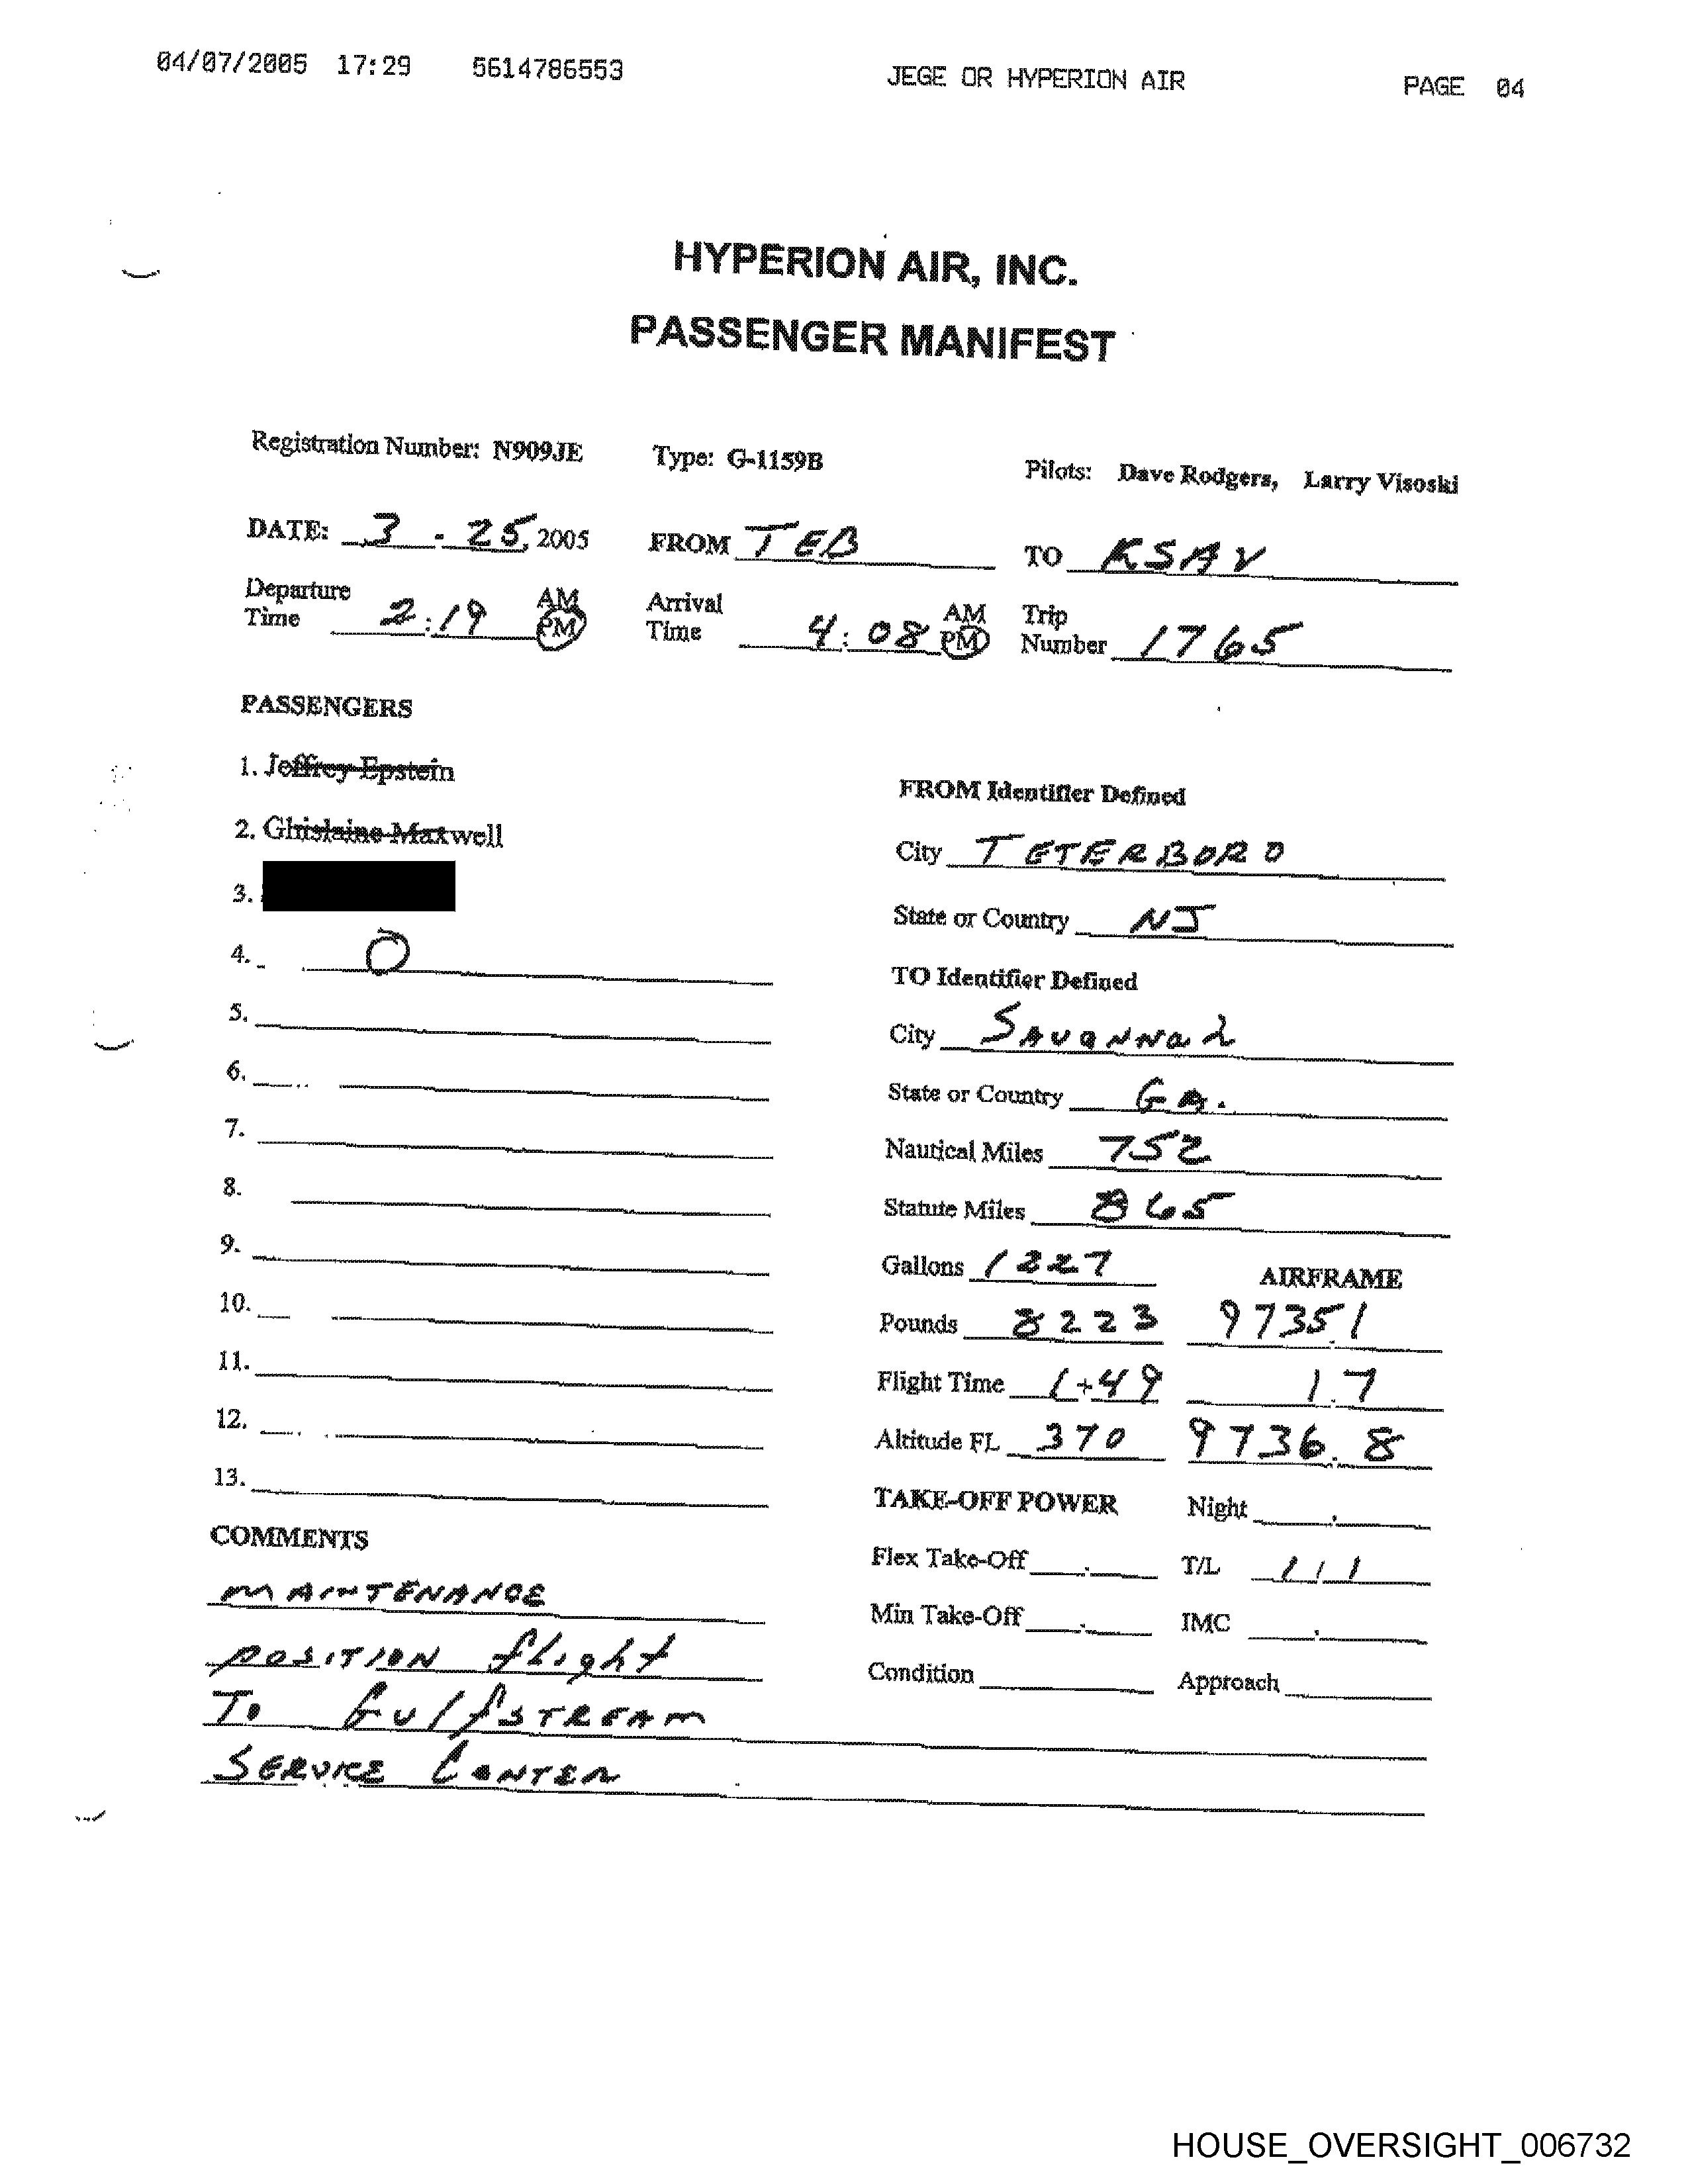 04/07/2005 17:29 5614786553 JEGE OR HYPERION AIR PAGE 04
HYPERION AIR, INC.
PASSENGER MANIFEST
Registration Number: N909JE Type: G-1159B Pilots: Dave Rodgers, Larry Visoski
DATE: 3 - 25, 2005 FROM TEB TO KSAV
Departure Time 2:19 AM PM Arrival Time 4:08 AM PM Trip Number 1765
PASSENGERS
1. Jeffrey Epstein
2. Ghislaine Maxwell
3.
4. 0
5.
6.
7.
8.
9.
10.
11.
12.
13.
COMMENTS
MAINTENANCE
POSITION flight
To GulfSTREAM
SERVICE CENTER
FROM Identifier Defined
City TETERBORO
State or Country NJ
TO Identifier Defined
City SAVANNah
State or Country GA.
Nautical Miles 752
Statute Miles 865
Gallons 1227 AIRFRAME
Pounds 8223 9735.1
Flight Time 1+49 1.7
Altitude FL 370 9736.8
TAKE-OFF POWER Night .
Flex Take-Off . T/L 1 / 1
Min Take-Off . IMC .
Condition Approach
HOUSE_OVERSIGHT_006732